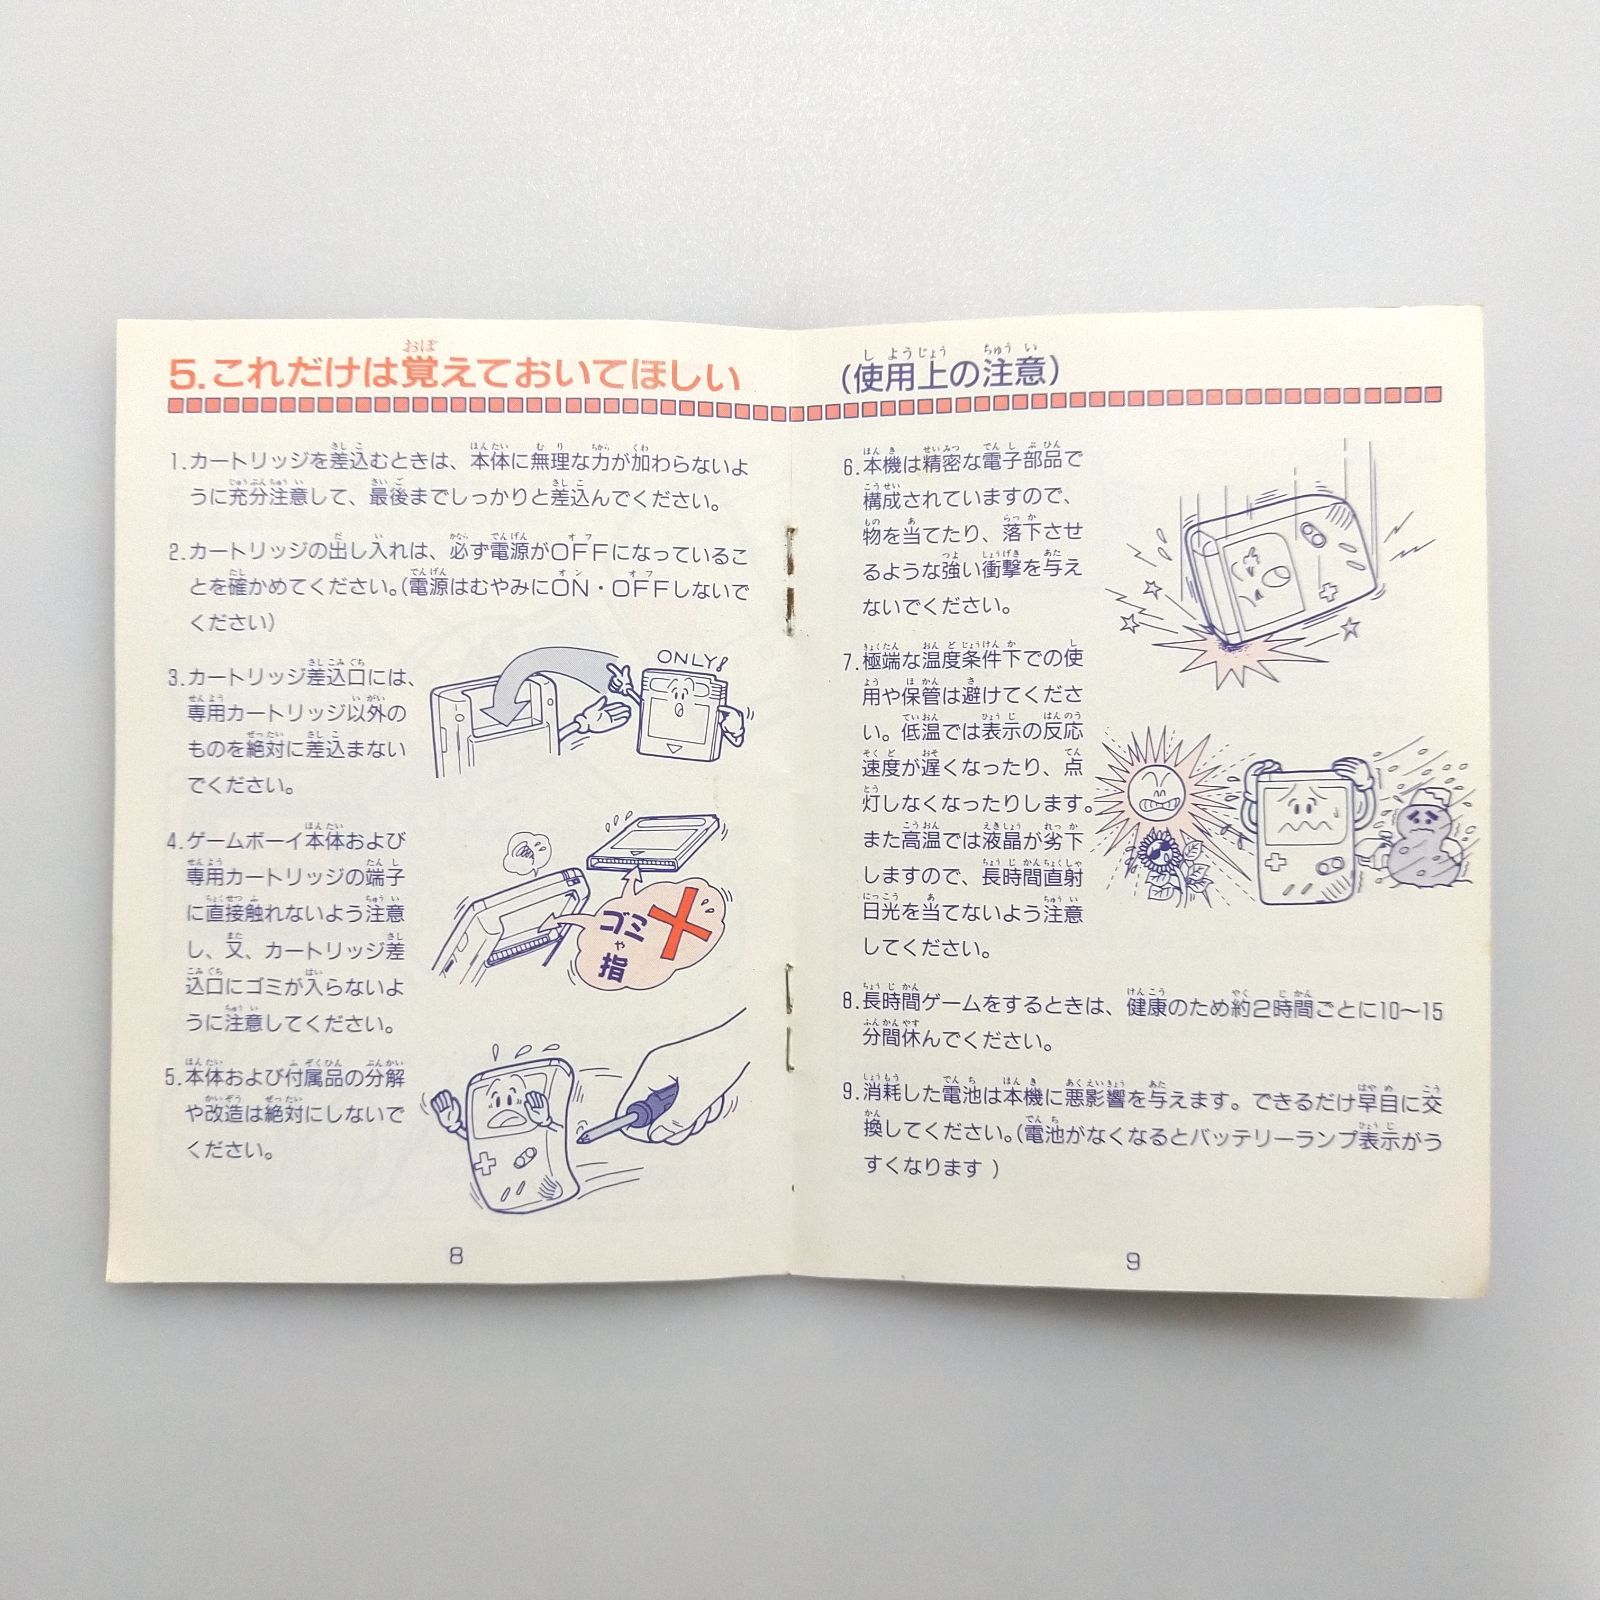 5.これだけは覚えておいてほしい
1.カートリッジを差込むときは、本体に無理な力が加わらないよ
うに充分注意して、最後までしっかりと差込んでください。
2.カートリッジの出し入れは、必ず電源がOFFになっているこ
とを確かめてください。(電源はむやみにON・OFFしないで
ください)
3.カートリッジ差込口には、
専用カートリッジ以外の
ものを絶対に差込まない
でください。
ONLY!
4.ゲームボーイ本体および
専用カートリッジの端子
に直接触れないよう注意
し、又、カートリッジ差
込口にゴミが入らないよ
うに注意してください。
ゴミ
や
指
5.本体および付属品の分解
や改造は絶対にしないで
ください。
8
(使用上の注意)
6.本機は精密な電子部品で
構成されていますので、
物を当てたり、落下させ
るような強い衝撃を与え
ないでください。
7.極端な温度条件下での使
用や保管は避けてくださ
い。低温では表示の反応
速度が遅くなったり、点
灯しなくなったりします。
また高温では液晶が劣下
しますので、長時間直射
日光を当てないよう注意
してください。
8.長時間ゲームをするときは、健康のため約2時間ごとに10〜15
分間休んでください。
9.消耗した電池は本機に悪影響を与えます。できるだけ早目に交
換してください。(電池がなくなるとバッテリーランプ表示がう
すくなります )
9